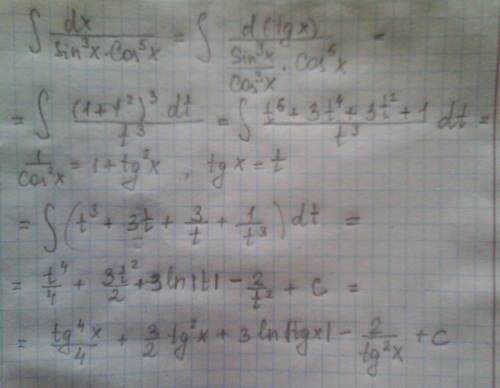 ∫ dx / (sin³x · cos⁵x) = ∫ d(tgx) / ((sin³x / cos³x) · cos⁶x) =
= ∫ (1+t²)³ dt / t³ = ∫ (t⁶ + 3t⁴ + 3t² + 1) / t³ dt =
1 / cos²x = 1 + tg²x , tgx = t
= ∫ (t³ + 3t + 3/t + 1/t³) dt =
= t⁴/4 + 3t²/2 + 3 ln|t| − 2/t² + c =
= tg⁴x/4 + 3/2 tg²x + 3 ln|tgx| − 2/tg²x + c